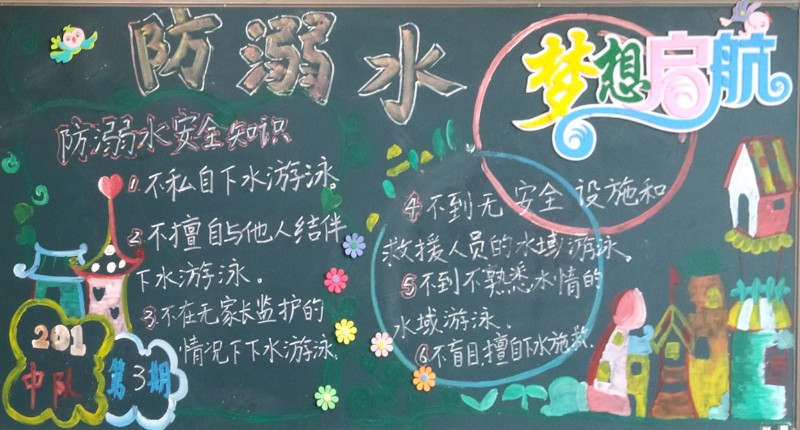 防溺水
梦想启航
防溺水安全知识
①不私自下水游泳。
②不擅自与他人结伴
下水游泳。
③不在无家长监护的
情况下下水游泳。
④不到无安全设施和
救援人员的水域游泳。
⑤不到不熟悉水情的
水域游泳。
⑥不盲目擅自下水施救。
201
中队
第3期